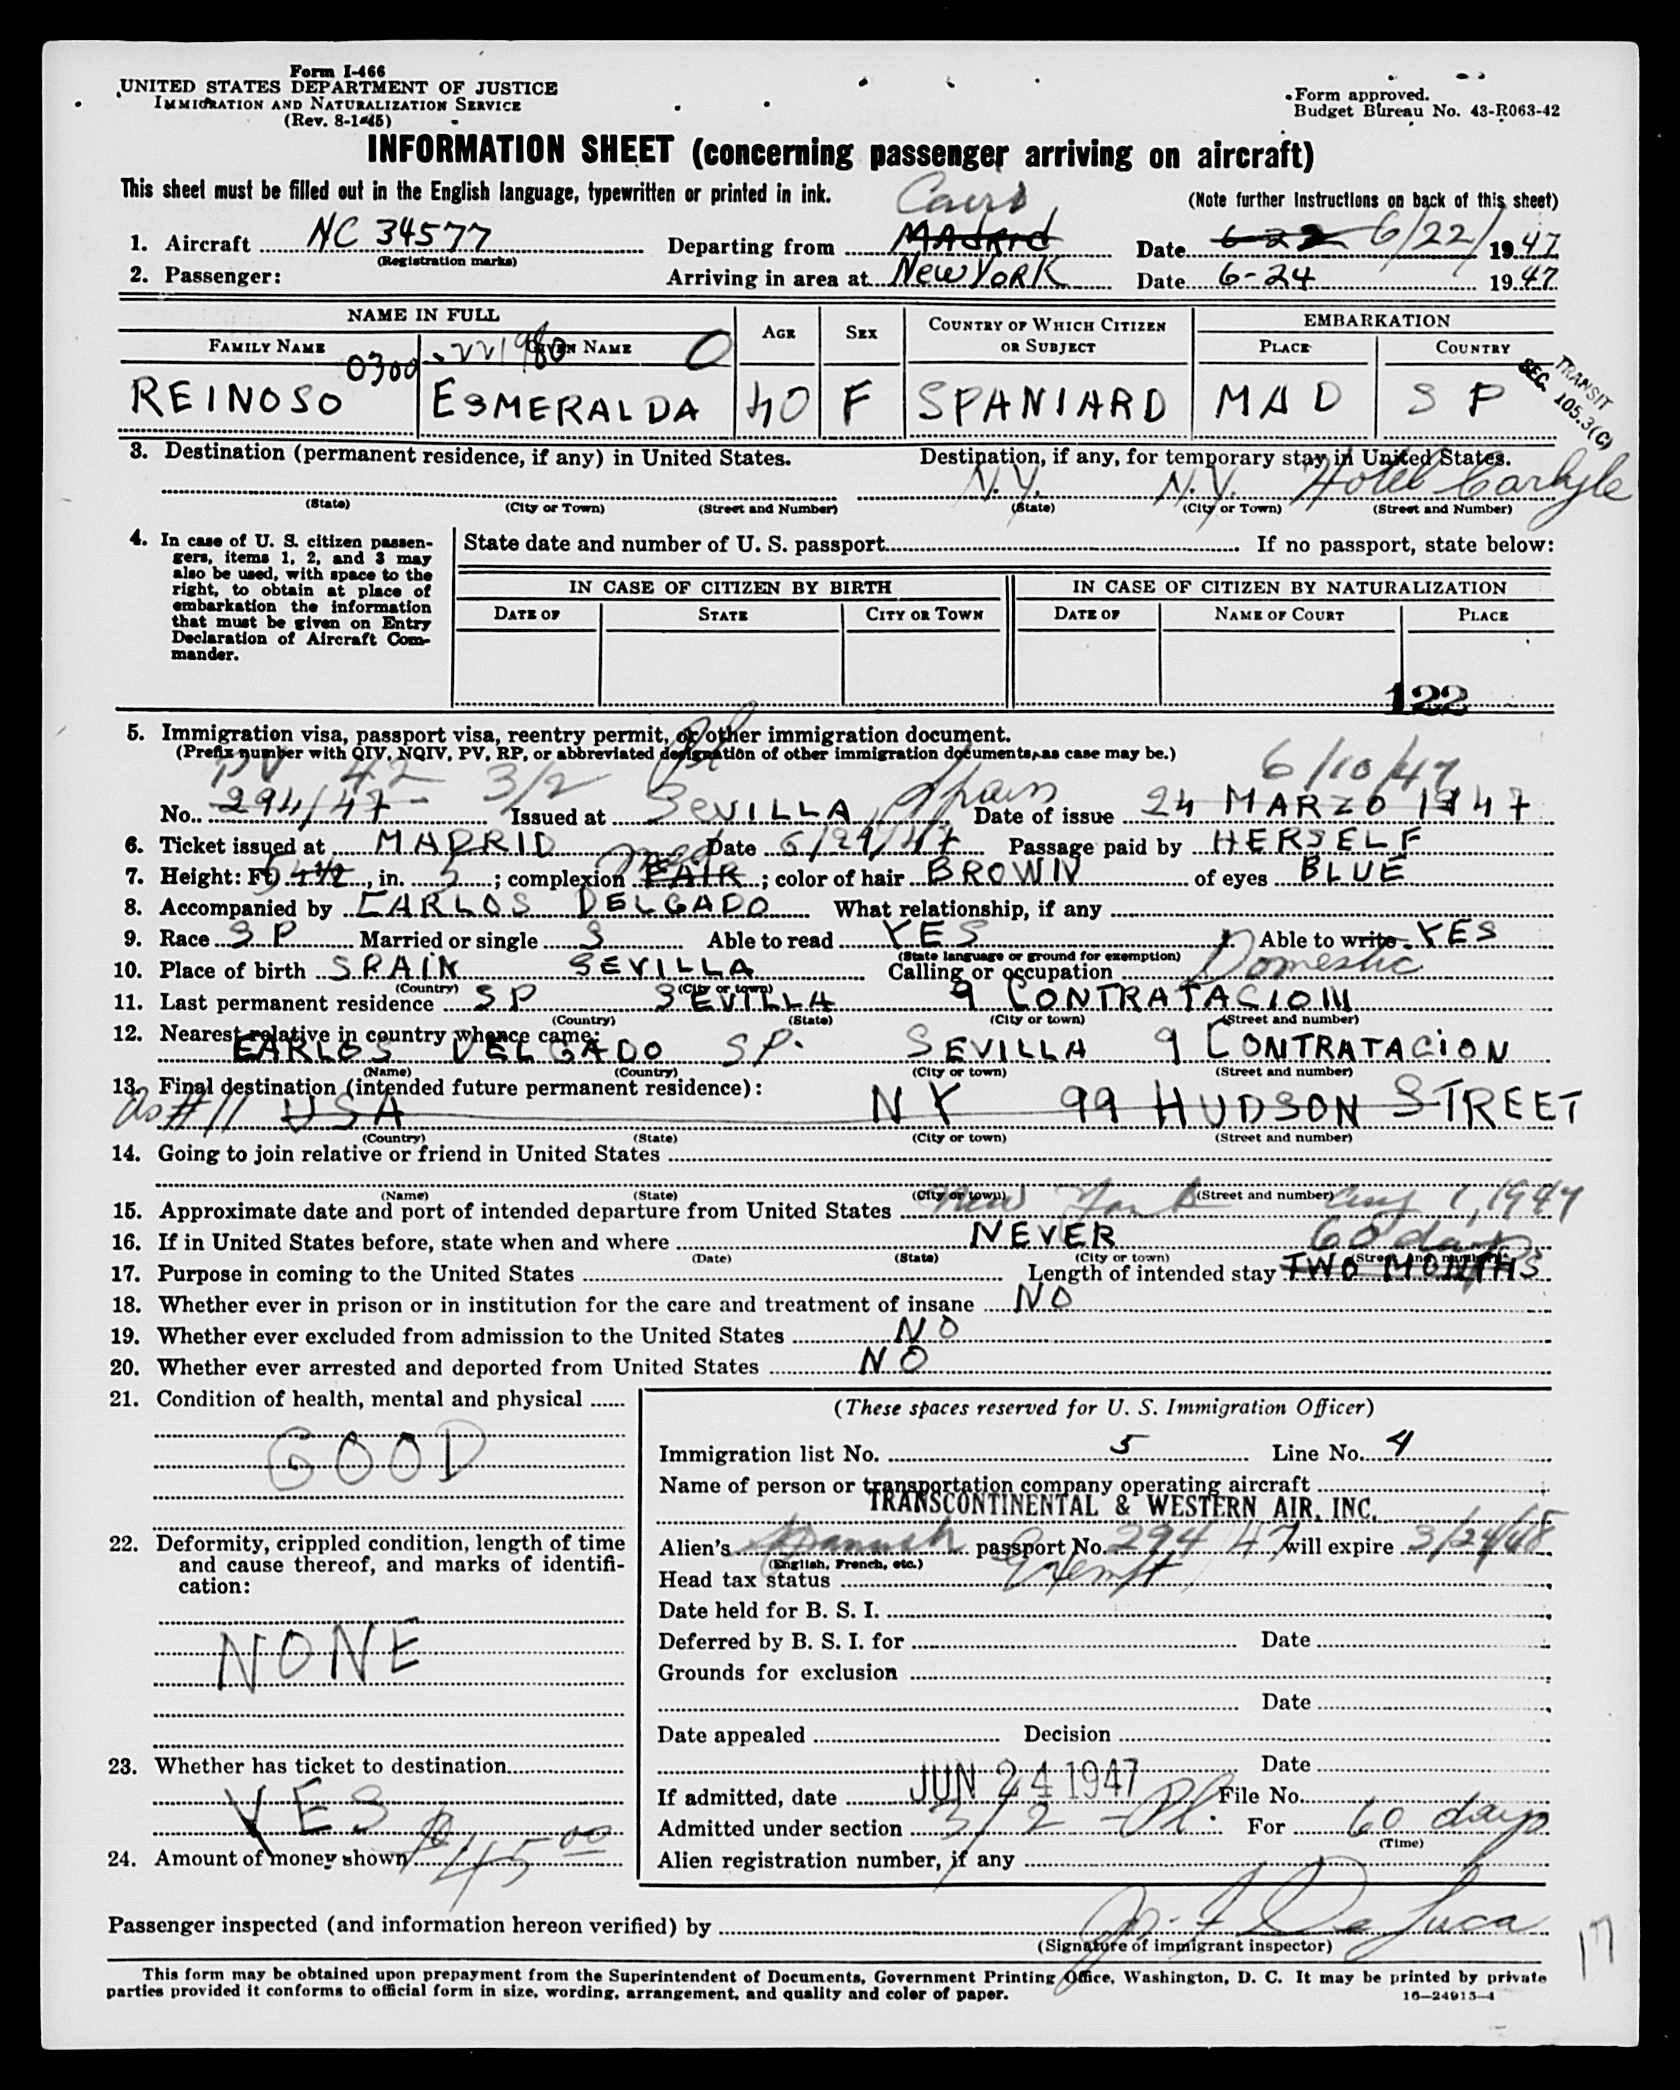 Form I-466
UNITED STATES DEPARTMENT OF JUSTICE
IMMIGRATION AND NATURALIZATION SERVICE
(Rev. 8-1-45)
Form approved.
Budget Bureau No. 43-R063-42
INFORMATION SHEET (concerning passenger arriving on aircraft)
This sheet must be filled out in the English language, typewritten or printed in ink.
(Note further instructions on back of this sheet)
Cairo
1. Aircraft NC 34577 Departing from Madrid Date 6-22 6/22/ 1947
(Registration marks)
2. Passenger: Arriving in area at New York Date 6-24 1947
NAME IN FULL AGE SEX COUNTRY OF WHICH CITIZEN OR SUBJECT EMBARKATION
FAMILY NAME GIVEN NAME PLACE COUNTRY
0300 O
TRANSIT
SEC. 105.3(C)
REINOSO ESMERALDA 40 F SPANIARD MAD SP
3. Destination (permanent residence, if any) in United States. Destination, if any, for temporary stay in United States.
N.Y. N.Y. Hotel Carlyle
(State) (City or Town) (Street and Number) (State) (City or Town) (Street and Number)
4. In case of U. S. citizen passengers, items 1, 2, and 3 may also be used, with space to the right, to obtain at place of embarkation the information that must be given on Entry Declaration of Aircraft Commander.
State date and number of U. S. passport If no passport, state below:
IN CASE OF CITIZEN BY BIRTH IN CASE OF CITIZEN BY NATURALIZATION
DATE OF STATE CITY OR TOWN DATE OF NAME OF COURT PLACE
122
5. Immigration visa, passport visa, reentry permit, or other immigration document.
(Prefix number with QIV, NQIV, PV, RP, or abbreviated designation of other immigration documents, as case may be.)
PV 42 3/2 Spain 6/10/47
No. 294/47 Issued at SEVILLA Date of issue 24 MARZO 1947
6. Ticket issued at MADRID Date 6/21/47 Passage paid by HERSELF
med
7. Height: Ft. 5, in. 5; complexion FAIR; color of hair BROWN of eyes BLUE
8. Accompanied by CARLOS DELGADO What relationship, if any
9. Race SP Married or single S Able to read YES Able to write YES
(State language or ground for exemption)
10. Place of birth SPAIN SEVILLA Calling or occupation Domestic
(Country) (City or town)
11. Last permanent residence SP SEVILLA 9 CONTRATACION
(Country) (State) (City or town) (Street and number)
12. Nearest relative in country whence came:
CARLOS DELGADO SP. SEVILLA 9 CONTRATACION
(Name) (Country) (City or town) (Street and number)
13. Final destination (intended future permanent residence):
as #11 USA NY 99 HUDSON STREET
(Country) (State) (City or town) (Street and number)
14. Going to join relative or friend in United States
(Name) (State) (City or town) (Street and number)
15. Approximate date and port of intended departure from United States New York Aug 1, 1947
16. If in United States before, state when and where NEVER
(Date) (State) (City or town) (Street and number)
60 days
17. Purpose in coming to the United States Length of intended stay TWO MONTHS
18. Whether ever in prison or in institution for the care and treatment of insane NO
19. Whether ever excluded from admission to the United States NO
20. Whether ever arrested and deported from United States NO
21. Condition of health, mental and physical
GOOD
22. Deformity, crippled condition, length of time and cause thereof, and marks of identification:
NONE
23. Whether has ticket to destination
YES
24. Amount of money shown $45.00
(These spaces reserved for U. S. Immigration Officer)
Immigration list No. 5 Line No. 4
Name of person or transportation company operating aircraft
TRANSCONTINENTAL & WESTERN AIR, INC.
Alien's Spanish passport No. 294/47 will expire 3/24/48
(English, French, etc.)
Head tax status Exempt
Date held for B. S. I.
Deferred by B. S. I. for Date
Grounds for exclusion
Date
Date appealed Decision
Date
If admitted, date JUN 24 1947 File No.
Admitted under section 3/2 - Pl. For 60 days
(Time)
Alien registration number, if any
Passenger inspected (and information hereon verified) by Jos. F. De Luca
(Signature of immigrant inspector)
17
This form may be obtained upon prepayment from the Superintendent of Documents, Government Printing Office, Washington, D. C. It may be printed by private
parties provided it conforms to official form in size, wording, arrangement, and quality and color of paper.
16-24915-1